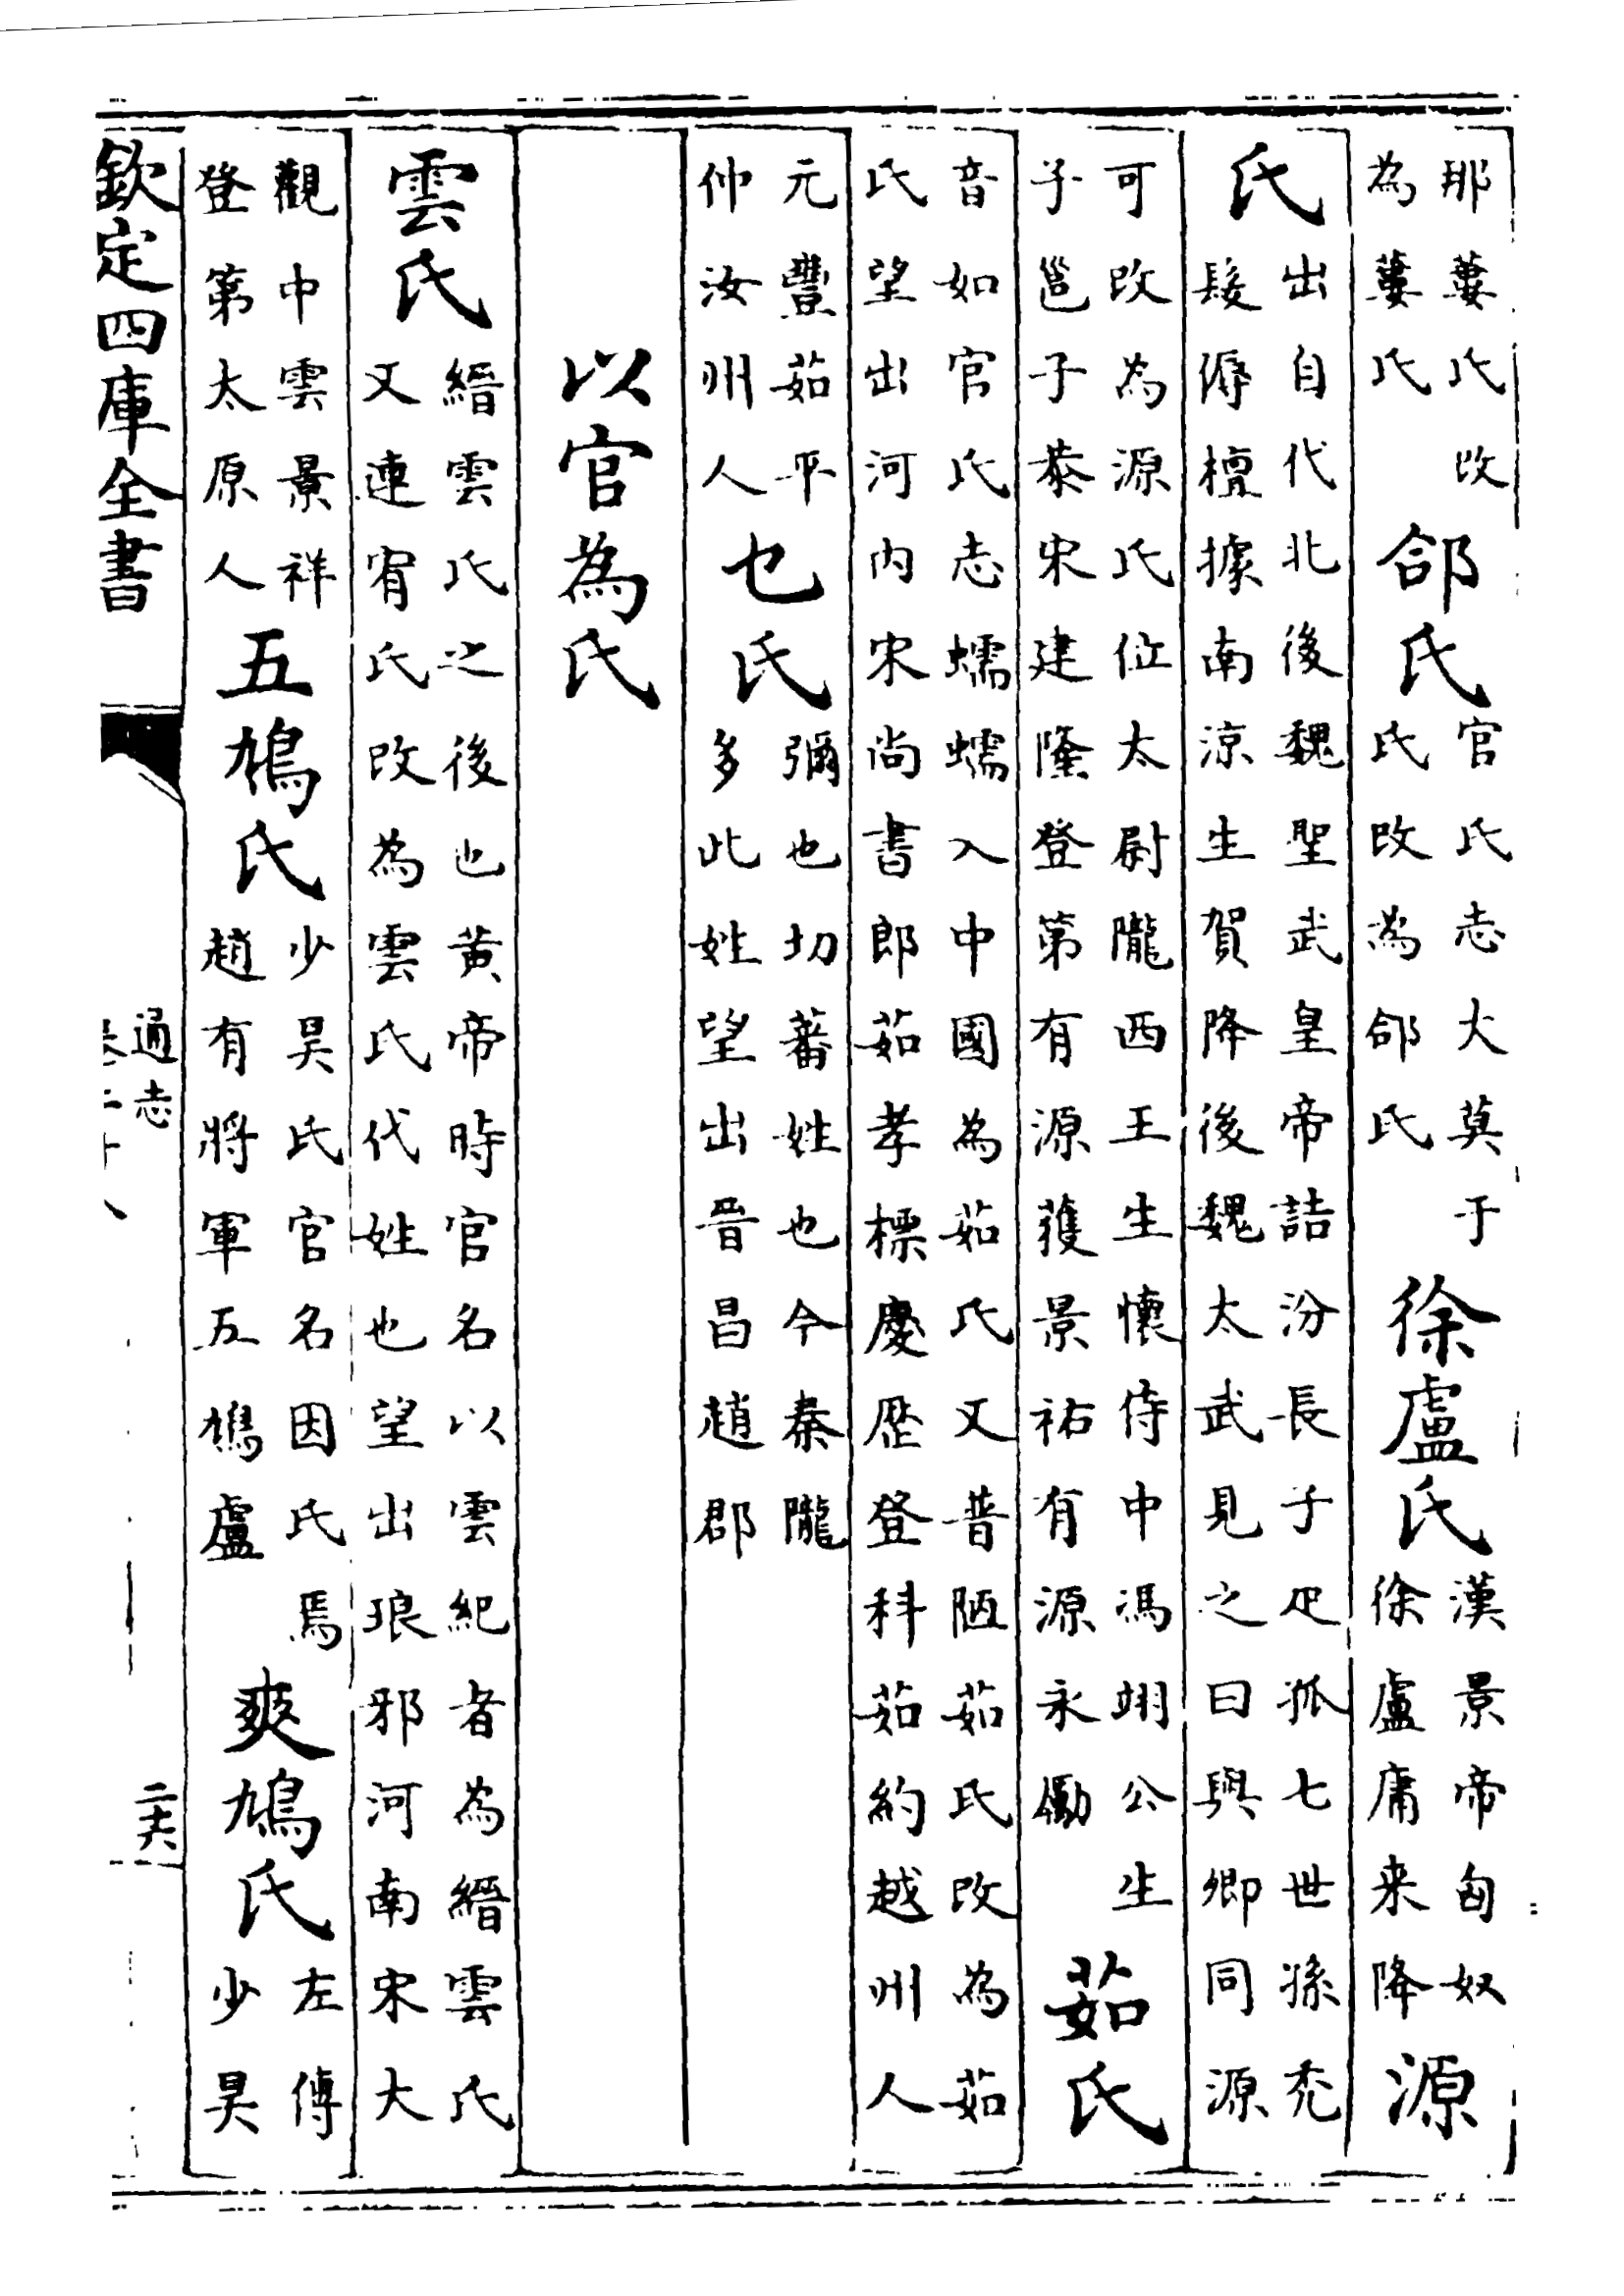 那蔞氏改為蔞氏 郃氏官氏志大莫于氏改為郃氏 徐盧氏漢景帝匈奴徐盧庸来降 源
氏出自代北後魏聖武皇帝詰汾長子疋孤七世孫禿髮傉檀據南涼生賀降後魏太武見之曰與卿同源
可改為源氏位太尉隴西王生懷侍中馮翊公生子邕子恭宋建隆登第有源獲景祐有源永勵 茹氏
音如官氏志蠕蠕入中國為茹氏又普陋茹氏改為茹氏望出河内宋尚書郎茹孝標慶歴登科茹約越州人
元豐茹平仲汝州人 乜氏彌也切蕃姓也今秦隴多此姓望出晉昌趙郡
以官為氏
雲氏縉雲氏之後也黄帝時官名以雲紀者為縉雲氏又連宥氏改為雲氏代姓也望出琅邪河南宋大
觀中雲景祥登第太原人 五鳩氏少昊氏官名因氏焉趙有將軍五鳩盧 爽鳩氏左傳少昊
欽定四庫全書
通志
二十六